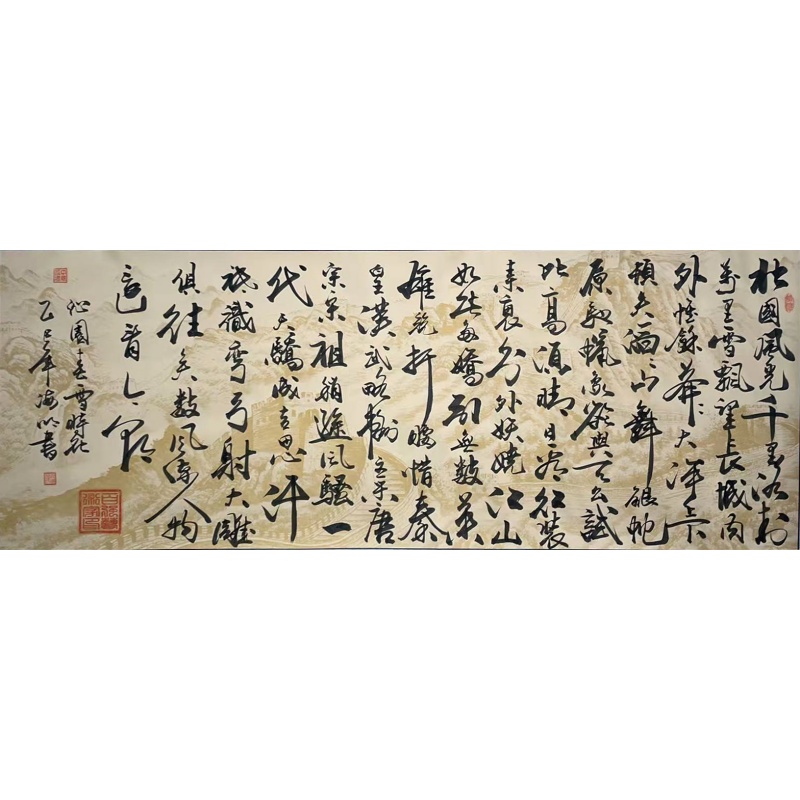 北國風光千里冰封
萬里雪飄望長城内
外惟餘莽莽大河上下
頓失滔滔山舞銀蛇
原馳蠟象欲與天公試
比高須晴日看紅裝
素裹分外妖嬈江山
如此多嬌引無數英
雄競折腰惜秦
皇漢武略輸文采唐
宗宋祖稍遜風騷一
代天驕成吉思汗
祇識彎弓射大雕
俱往矣數風流人物
還看今朝
沁園春雪時在
乙巳年書